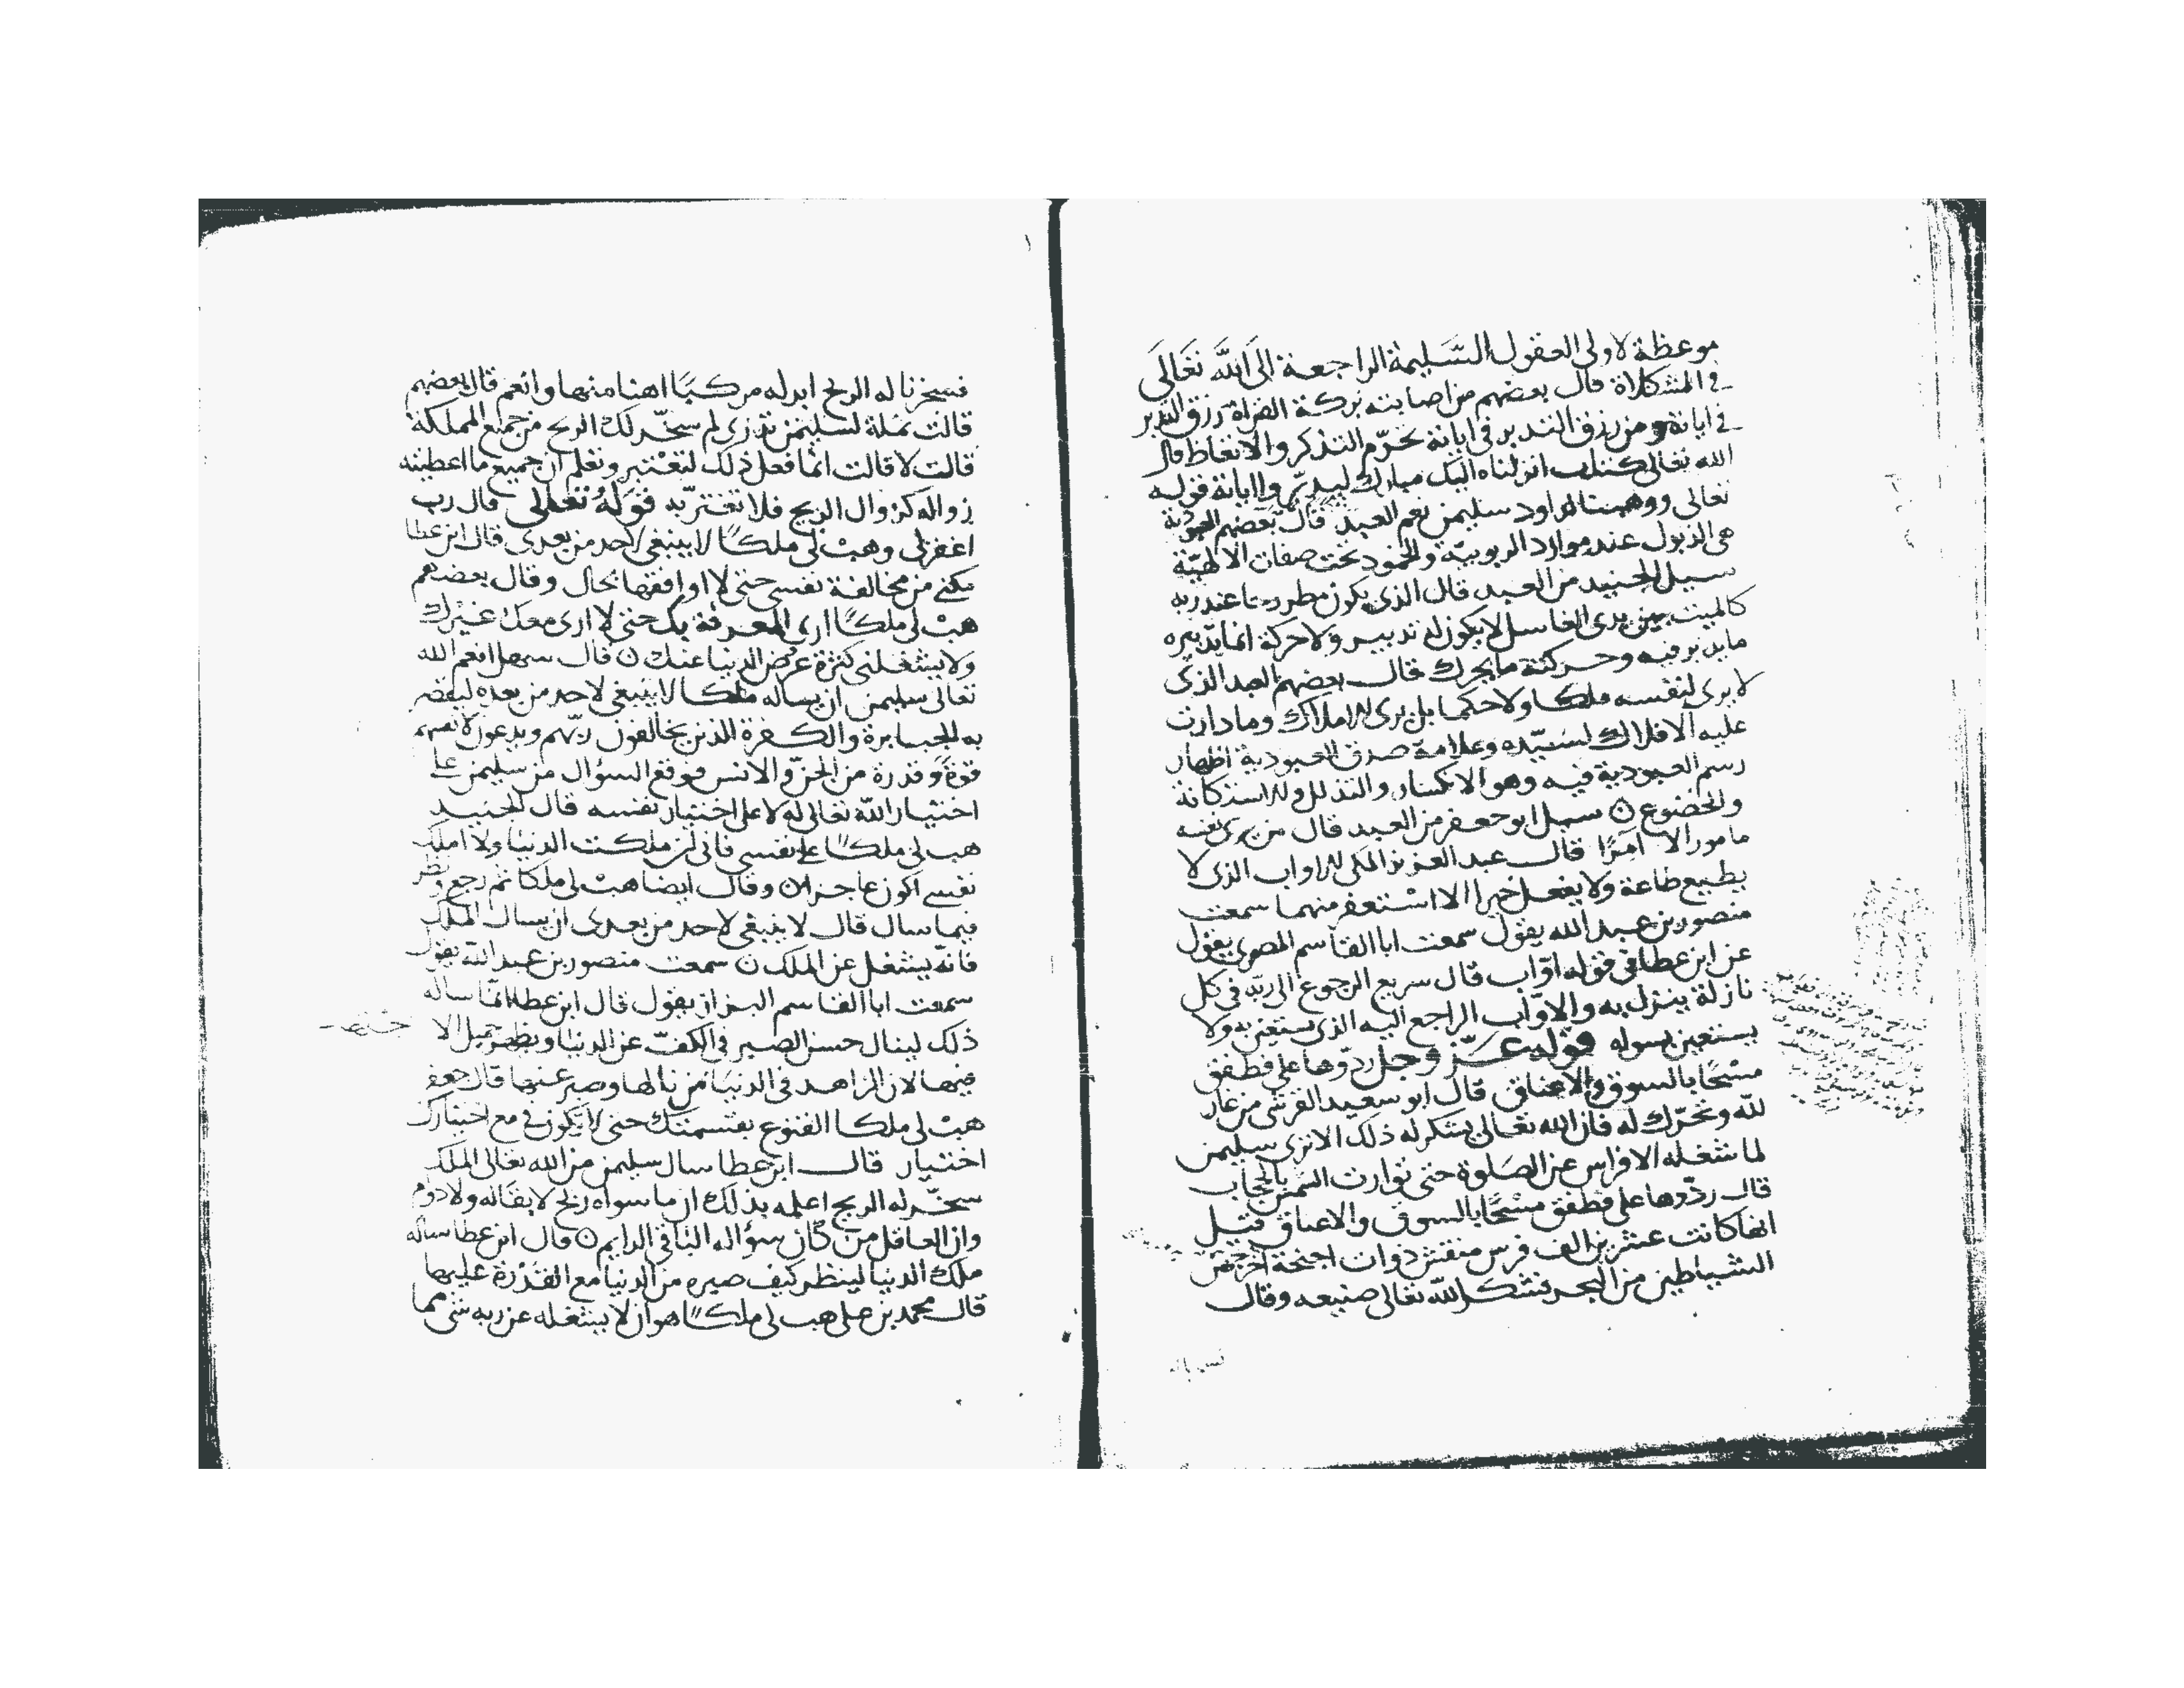 موعظة لاولى العقول السَّليمة الراجعة الى الله تعَالَى
في المشكلاة قال بعضهم من اصابته بركة القراة رزق التدبر
في اياته ومن رزق التدبر في اياته لم يحرم التذكر والاتعاظ قال
الله تعالى كتاب انزلناه اليك مبارك ليدبّروا اياته قوله
تعالى ووهبنا لداود سليمن نعم العبد قال بعضهم العبودية
هى الذبول عند موارد الربوبيّة والخمود تحت صفات الالهيّة
سيل الجنيد من العبد قال الذى يكون مطروحا عند ربه
كالميت بين يدى الغاسل لا يكون له تدبير ولا حركة انما تدبيره
ما يدبر فيه وحركته ما يحرك قال بعضهم العبد الذى
لا يرى لنفسه ملكا ولا حكما بل يرى الاملاك وما دارت
عليه الافلاك لسيّده وعلامة صدق العبودية اظهار
رسم العبودية فيه وهو الانكسار والتذلل والاستكانة
والخضوع ن سيل ابو حعفر من العبد قال من يرى نفسه
مامورا لا امرًا قال عبد العزيز المكى الاواب الذى لا
يطيع طاعة ولا يفعل خيرا الا اسْتغفر منهما سمعت
منصور بن عبد الله يقول سمعت ابا القاسم المصرى يقول
عن ابن عطا في قوله اوّاب قال سريع الرجوع الى ربّه في كل
نازلة ينزل به والاوّاب الراجع اليه الذى يستغنى به ولا
يستعين بسواه قوله عزّ وجل ردّوها على فطفق
مسْحًا بالسوق والاعناق قال ابو سعيد القرشى من غار
لله وتحرّك له فان الله تعالى يشكر له ذلك الا ترى سليمن
لما شغله الافراس عن الصَلوة حتى توارت الشمس بالحجاب
قال ردّوها على فطفق مسْحًا بالسوق والاعناق قيل
انها كانت عشرين الف فرس منقش ذوات اجنحة اخرجته
الشياطين من البحر فشكر الله تعالى صنيعه وقال
فسخرنا له الريح ابدله مركبًا اهنا منها وانعم قال بعضهم
قالت نملة لسليمن تدرى لم سخّر لك الريح من جميع المملكة
قالت لا قالت انما فعل ذلك لتعْتبر وتعلم ان جميع ما اعطيته
زواله كزوال الريح فلا تغترّ به قوله تعالى قال رب
اغفرلى وهبْ لى ملكًا لا ينبغى لاحد من بعدى قال ابن عطا
مكنى من مخالفة نفسى حتى لا اوافقها بحال وقال بعضهم
هبْ لى ملكًا ارى المعرفة بك حتى لا ارى معك غيرك
ولا يشغلنى كثرة عرُض الدنيا عنك ن قال سهل انعم الله
تعالى سليمن ان يساله ملكا لا ينبغى لاحد من بعده ليقصر
به الجبابرة والكفرة الذين يخالفون ربّهم ويدعون لانفسهم
قوةً وقدرة من الجنّ والانس فوقع السؤال من سليمن على
اختيار الله تعالى له لا على اختيار نفسه قال الجنيد
هب لى ملكًا على نفسى فانى ان ملكت الدنيا ولا املك
نفسى اكون عاجزا ن وقال ايضا هبْ لى ملكا ثم رجع ونظر
فيما سال قال لا ينبغى لاحد من بعدى ان يسال الملك
فانه يشغل عن الملك ن سمعت منصور بن عبد الله يقول
سمعت ابا القاسم البزاز يقول قال ابن عطا انمّا ساله
ذلك لينال حسن الصبر في الكفّ عن الدنيا ويظهر جميل الا
فيها لان الزاهد في الدنيا من نالها وصبر عنها قال جعفر
هبْ لى ملكا القنوع بقسمتك حتى لا يكون في مع اختيارك
اختيار قال ابن عطا سال سليمن من الله تعالى الملك
سخّر له الريح اعلمه بذلك ان ما سواه ريح لا بقا له ولا دوام
وان العاقل من كان سؤاله الباقى الدايم ن قال ابن عطا ساله
ملك الدنيا لينظر كيف صبره من الدنيا مع القدْرة عليها
قال محمد بن على هب لى ملكًا هو ان لا يشغله عن ربه شى مما